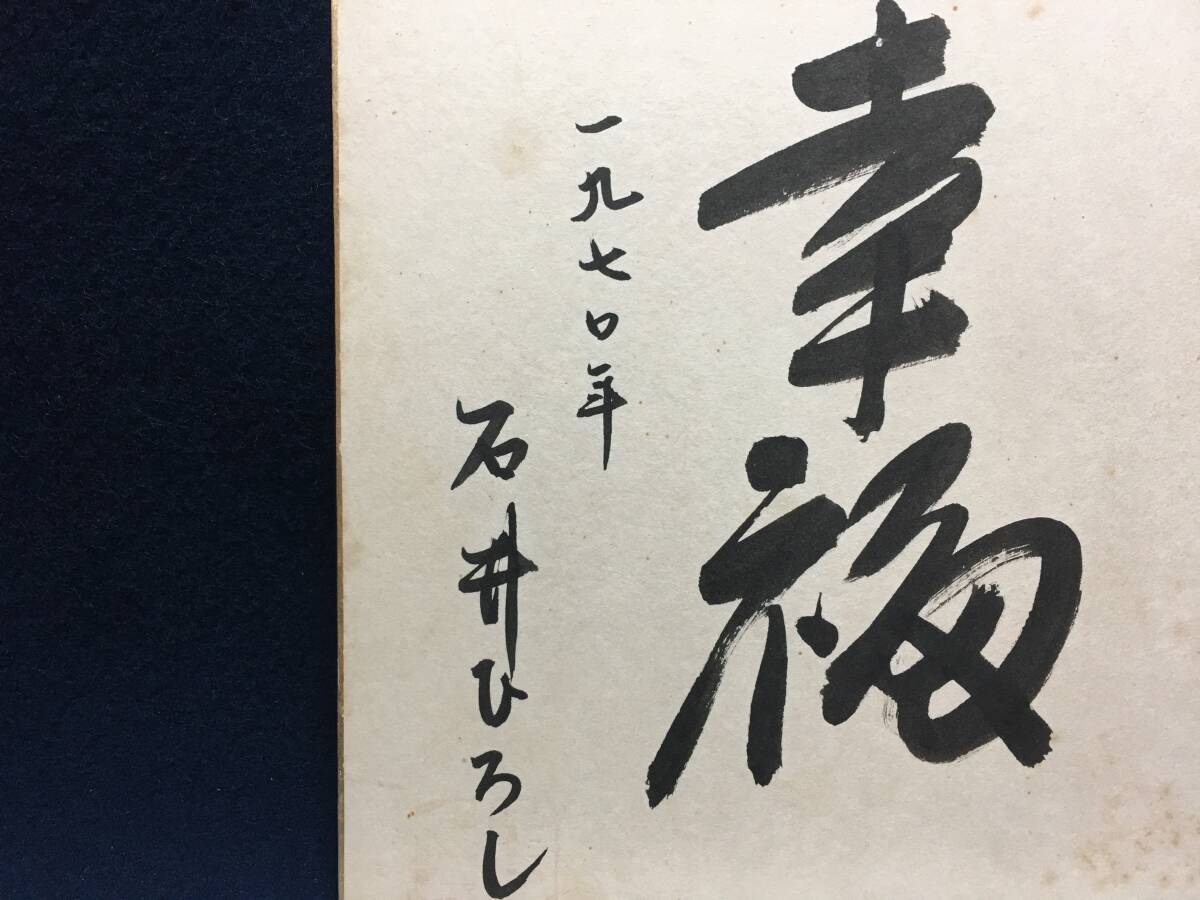 幸福
一九七〇年
石井ひろし